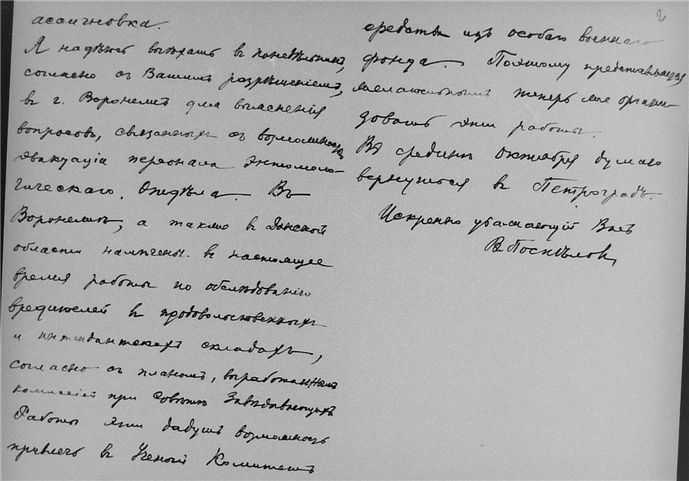 ассигновка.
Я надѣюсь выѣхать въ понедѣльникъ,
согласно съ Вашимъ разрѣшеніемъ,
въ г. Воронежъ для выясненія
вопросовъ, связанныхъ съ возможностью
эвакуаціи персонала Энтомоло-
гическаго Отдѣла. Въ
Воронежѣ, а также въ Донской
области намѣчены въ настоящее
время работы по обслѣдованію
вредителей въ продовольственныхъ
и интендантскихъ складахъ,
согласно съ планомъ, выработаннымъ
комиссіей при Совѣтѣ Завѣдывающихъ
Работы эти дадутъ возможность
привлечь въ Ученый Комитетъ
2
средства изъ особаго военнаго
фонда. Поэтому представляется
желательнымъ теперь же органи-
зовать эти работы.
Въ срединѣ Октября думаю
вернуться въ Петроградъ.
Искренно уважающій Васъ
В Поспѣловъ